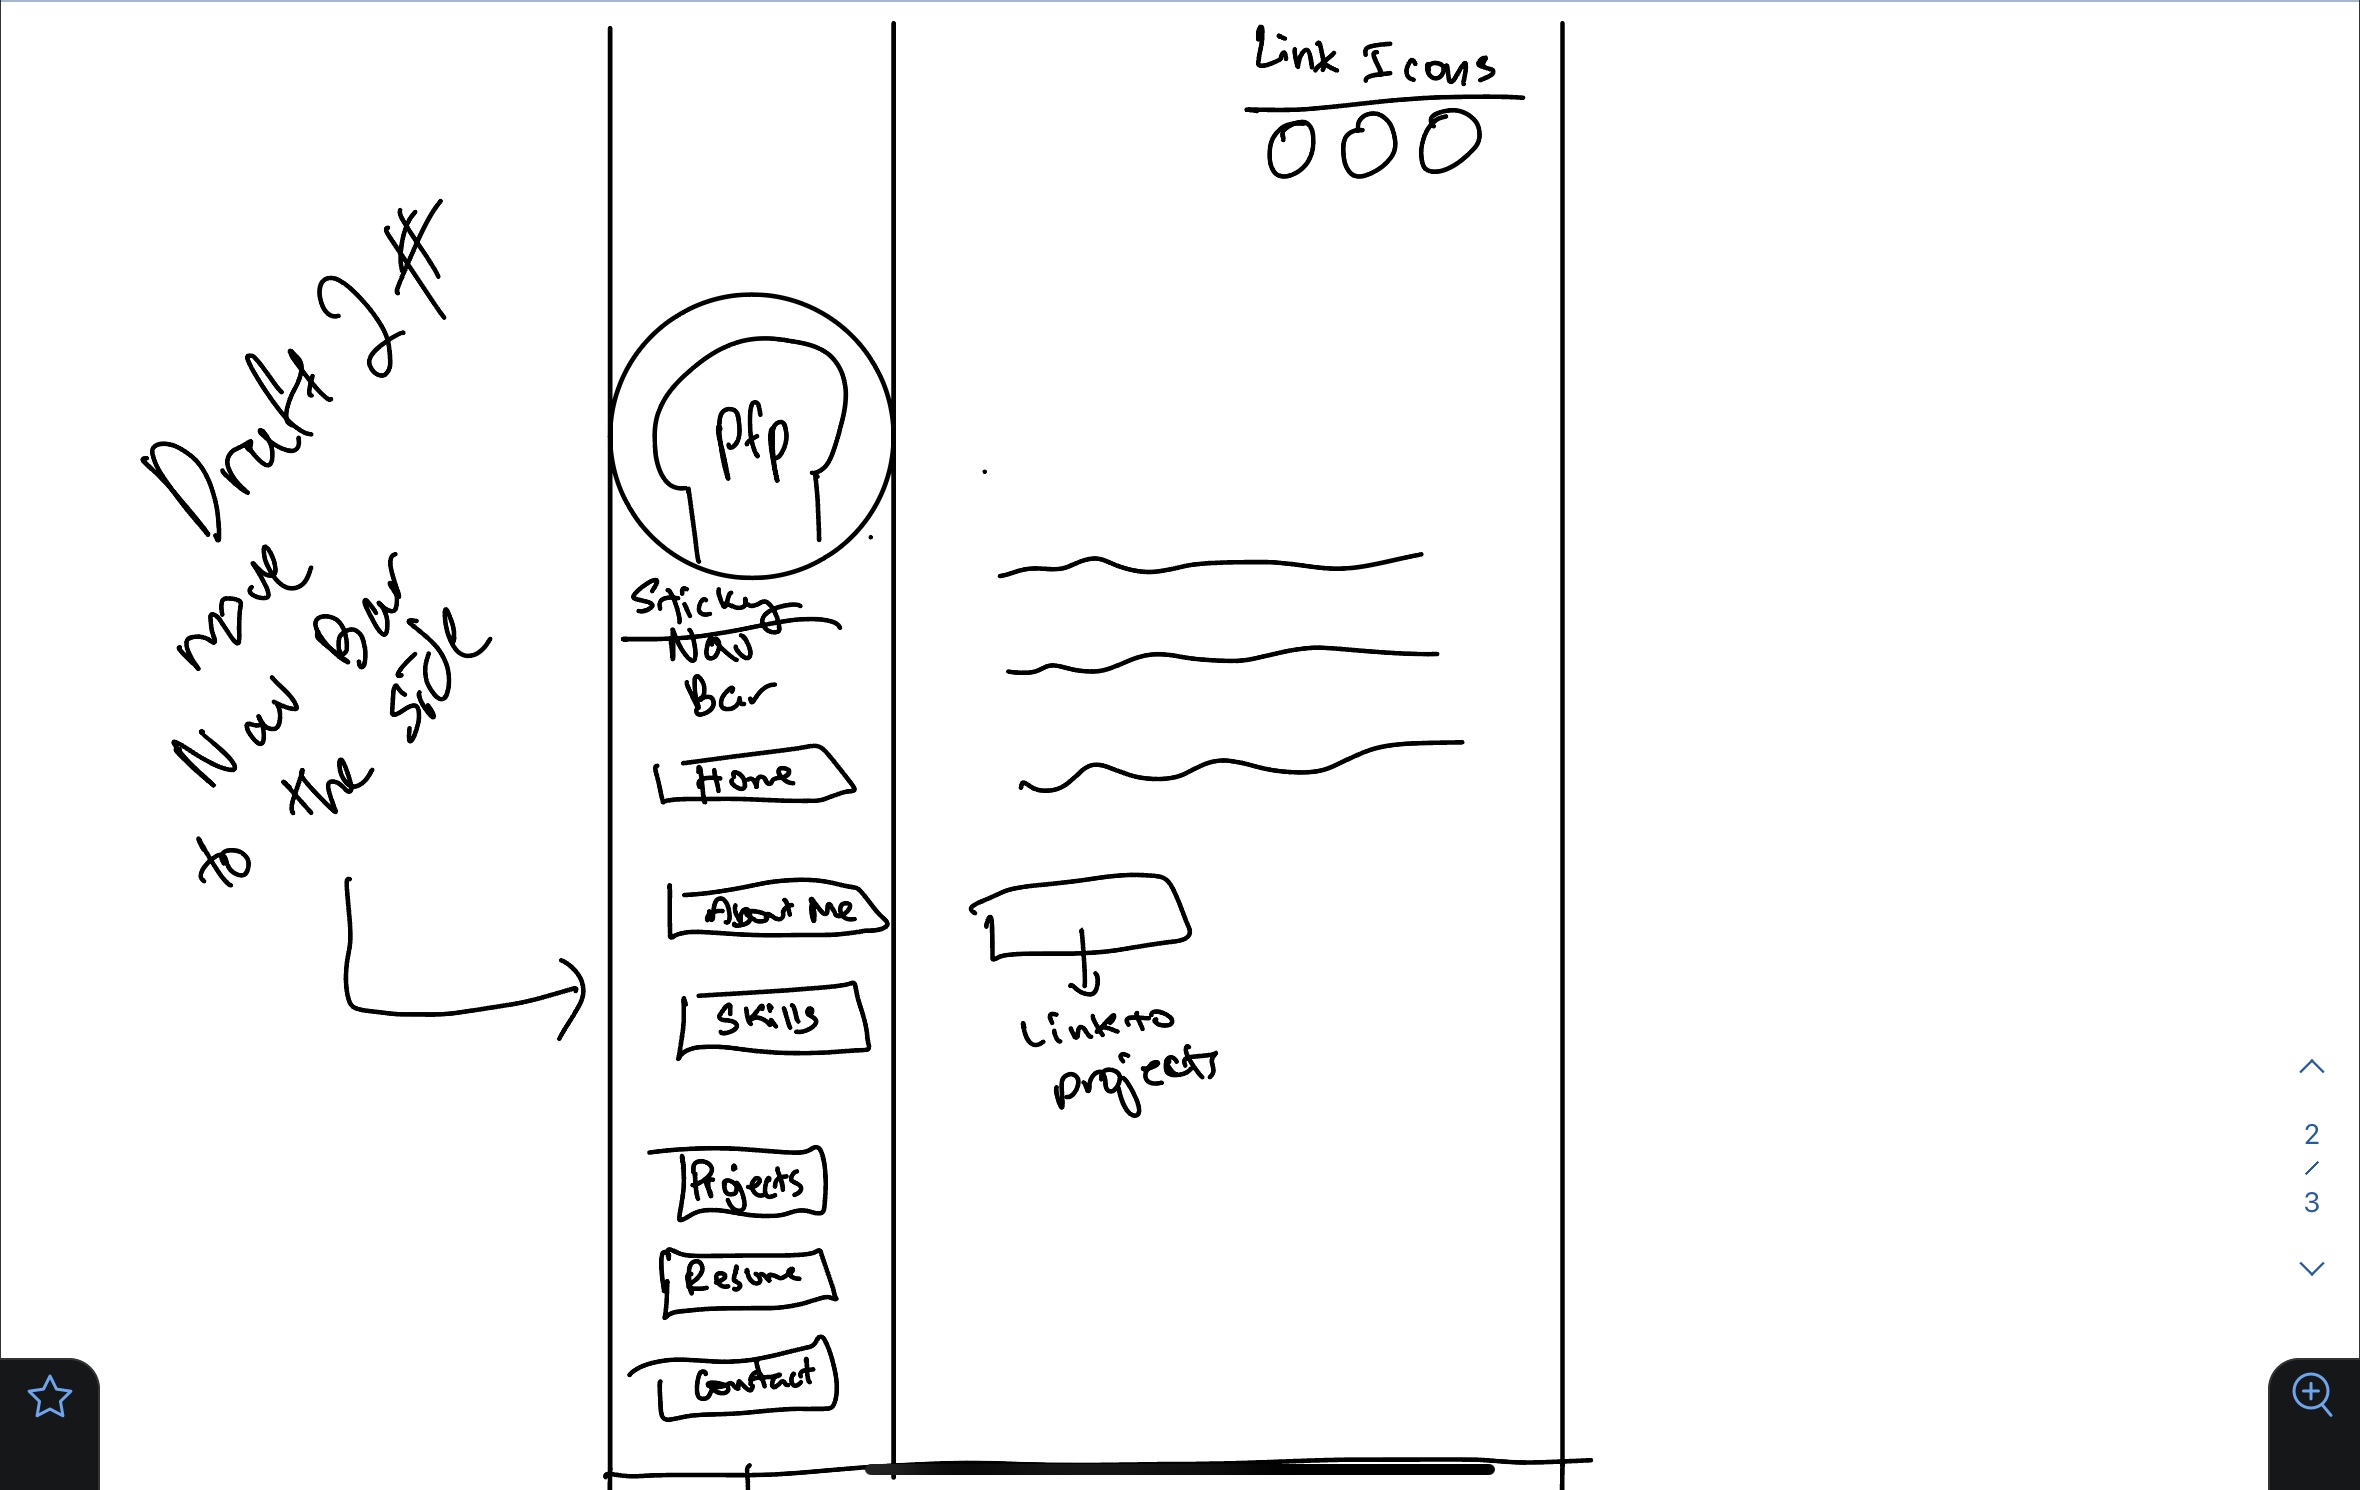 Link Icons
Draft 2#
move
Nav Bar
to the side
pfp
Sticky
Nav
Bar
Home
About Me
Skills
Projects
Resume
Contact
Link to
projects
2
/
3